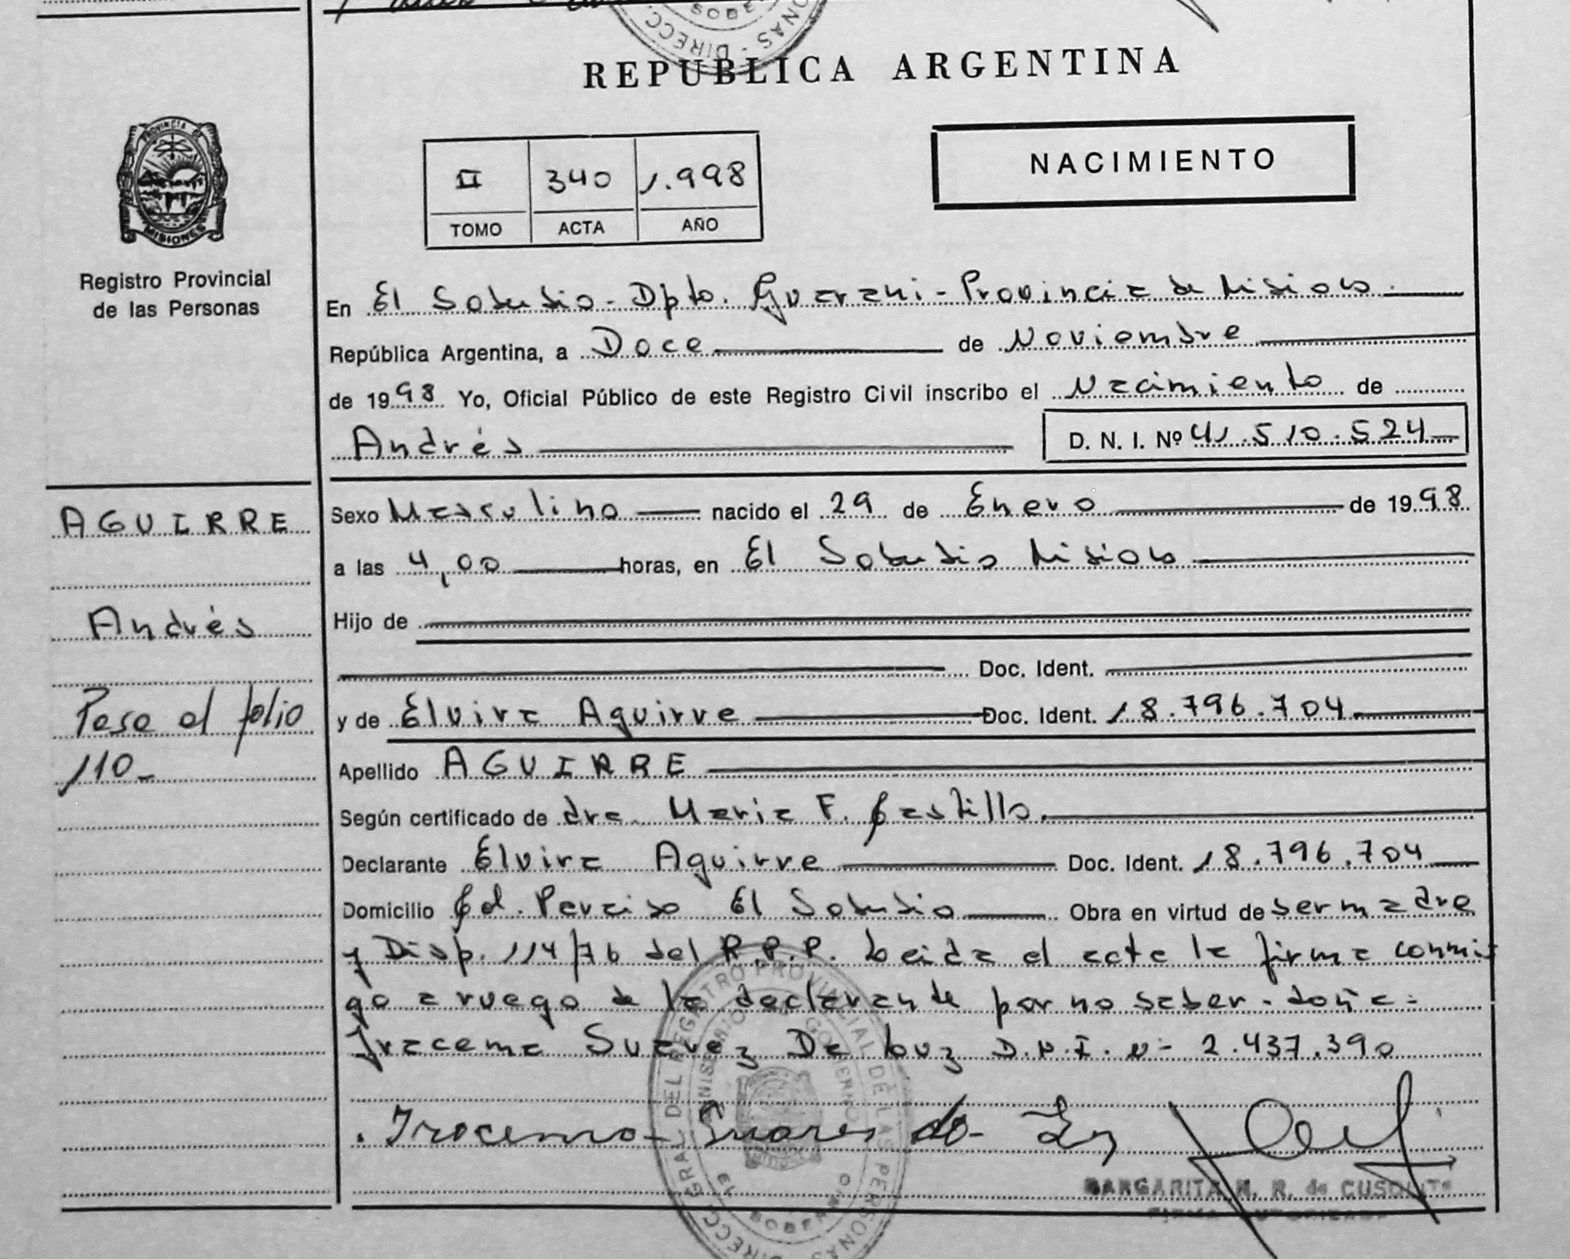 SOBER
DIRECC. ONAS
REPUBLICA ARGENTINA
PROVINCIA DE
MISIONES
Registro Provincial
de las Personas
II 340 1.998
TOMO ACTA AÑO
NACIMIENTO
En El Soberbio - Dpto. Guarani - Provincia de Misiones.
República Argentina, a Doce de Noviembre
de 1998 Yo, Oficial Público de este Registro Civil inscribo el Nacimiento de
Andrés D. N. I. Nº 41.510.524
AGUIRRE
Andrés
Pase al folio
110-
Sexo Masculino nacido el 29 de Enero de 1998
a las 4,00 horas, en El Soberbio Misiones
Hijo de
Doc. Ident.
y de Elvira Aguirre Doc. Ident. 18.796.704
Apellido AGUIRRE
Según certificado de dra. Maria F. Castillo.
Declarante Elvira Aguirre Doc. Ident. 18.796.704
Domicilio Col. Peraiso El Soberbio Obra en virtud de ser madre
y Disp. 114/76 del R.P.P. Leida el acta la firma conmi
go a ruego de la declarante por no saber - doña -
Iracema Suarez De Luz D.N.I. Nº 2.437.390
Iracema Suares de Luz
DIRECC. GRAL. DEL REGISTRO PROVINCIAL DE LAS PERSONAS
MINISTERIO GOBIERNO
SOBERBIO
MARGARITA N. R. de
FIRMA AUTORIZADA